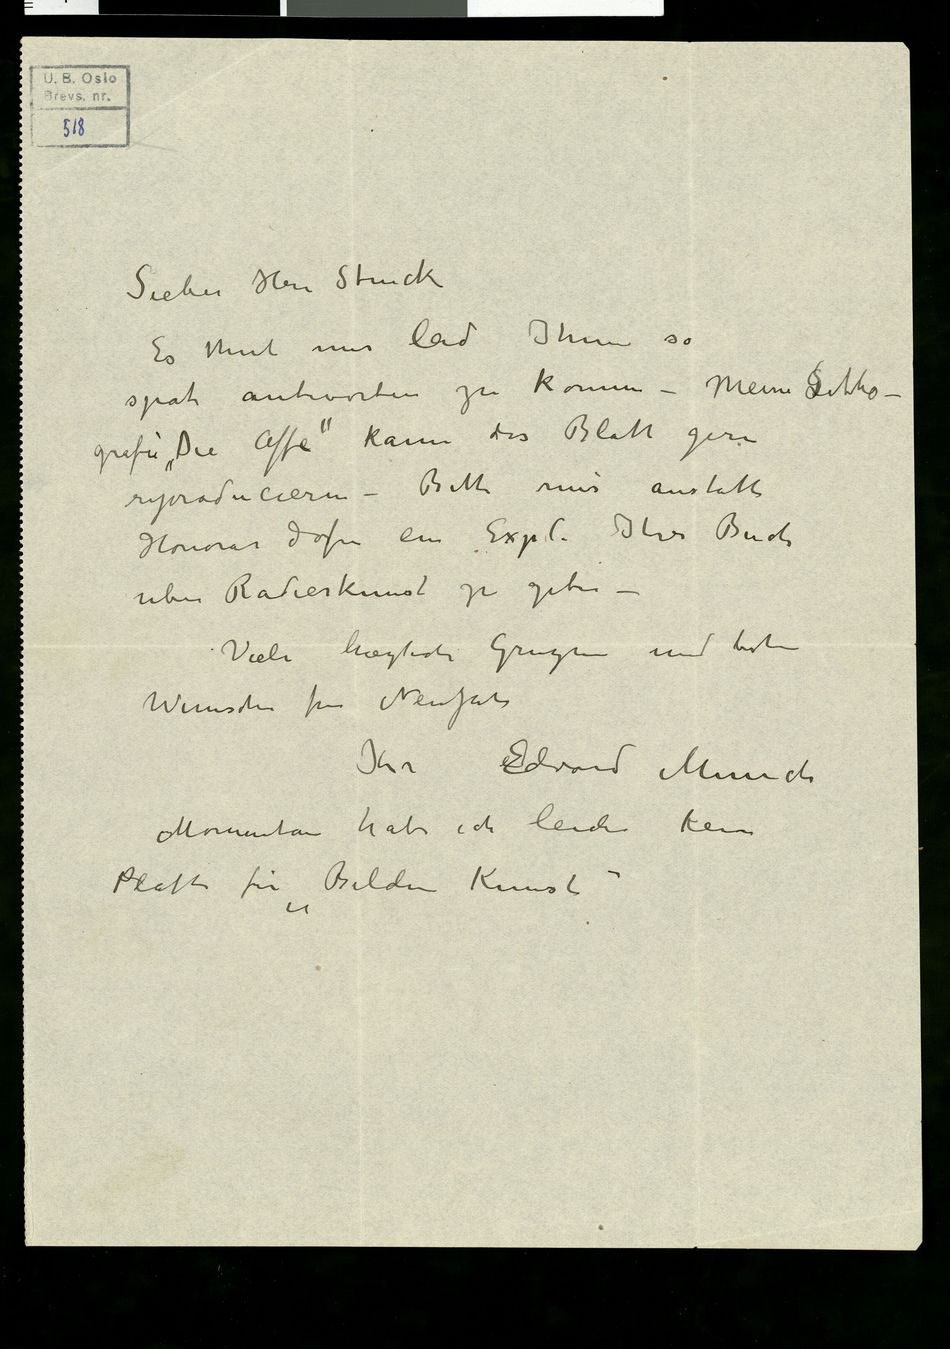 U. B. Oslo
Brevs. nr.
518
Lieber Herr Struck
Es thut mir leid Ihnen so
spät antworten zu konnen – Meine Litho-
grafie „Die Affe" kann das Blatt gern
reproducieren – Bitte mir anstatt
Honorar dafür ein Expl. Ihres Buch
uber Radierkunst zu geben –
Viele herzliche Gruzen und beste
Wunschen fur Neujahr
Ihr Edvard Munch
Momentan habe ich leider kein
Platte für „Bilden Kunst"